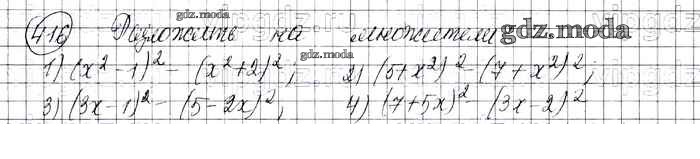 gdz.moda
416 Разложить на множители gdz.moda
1) (x² - 1)² - (x² + 2)²; 2) (5 + x²)² - (7 + x²)²;
3) (3x - 1)² - (5 - 2x)², 4) (7 + 5x)² - (3x - 2)²
gdz.moda